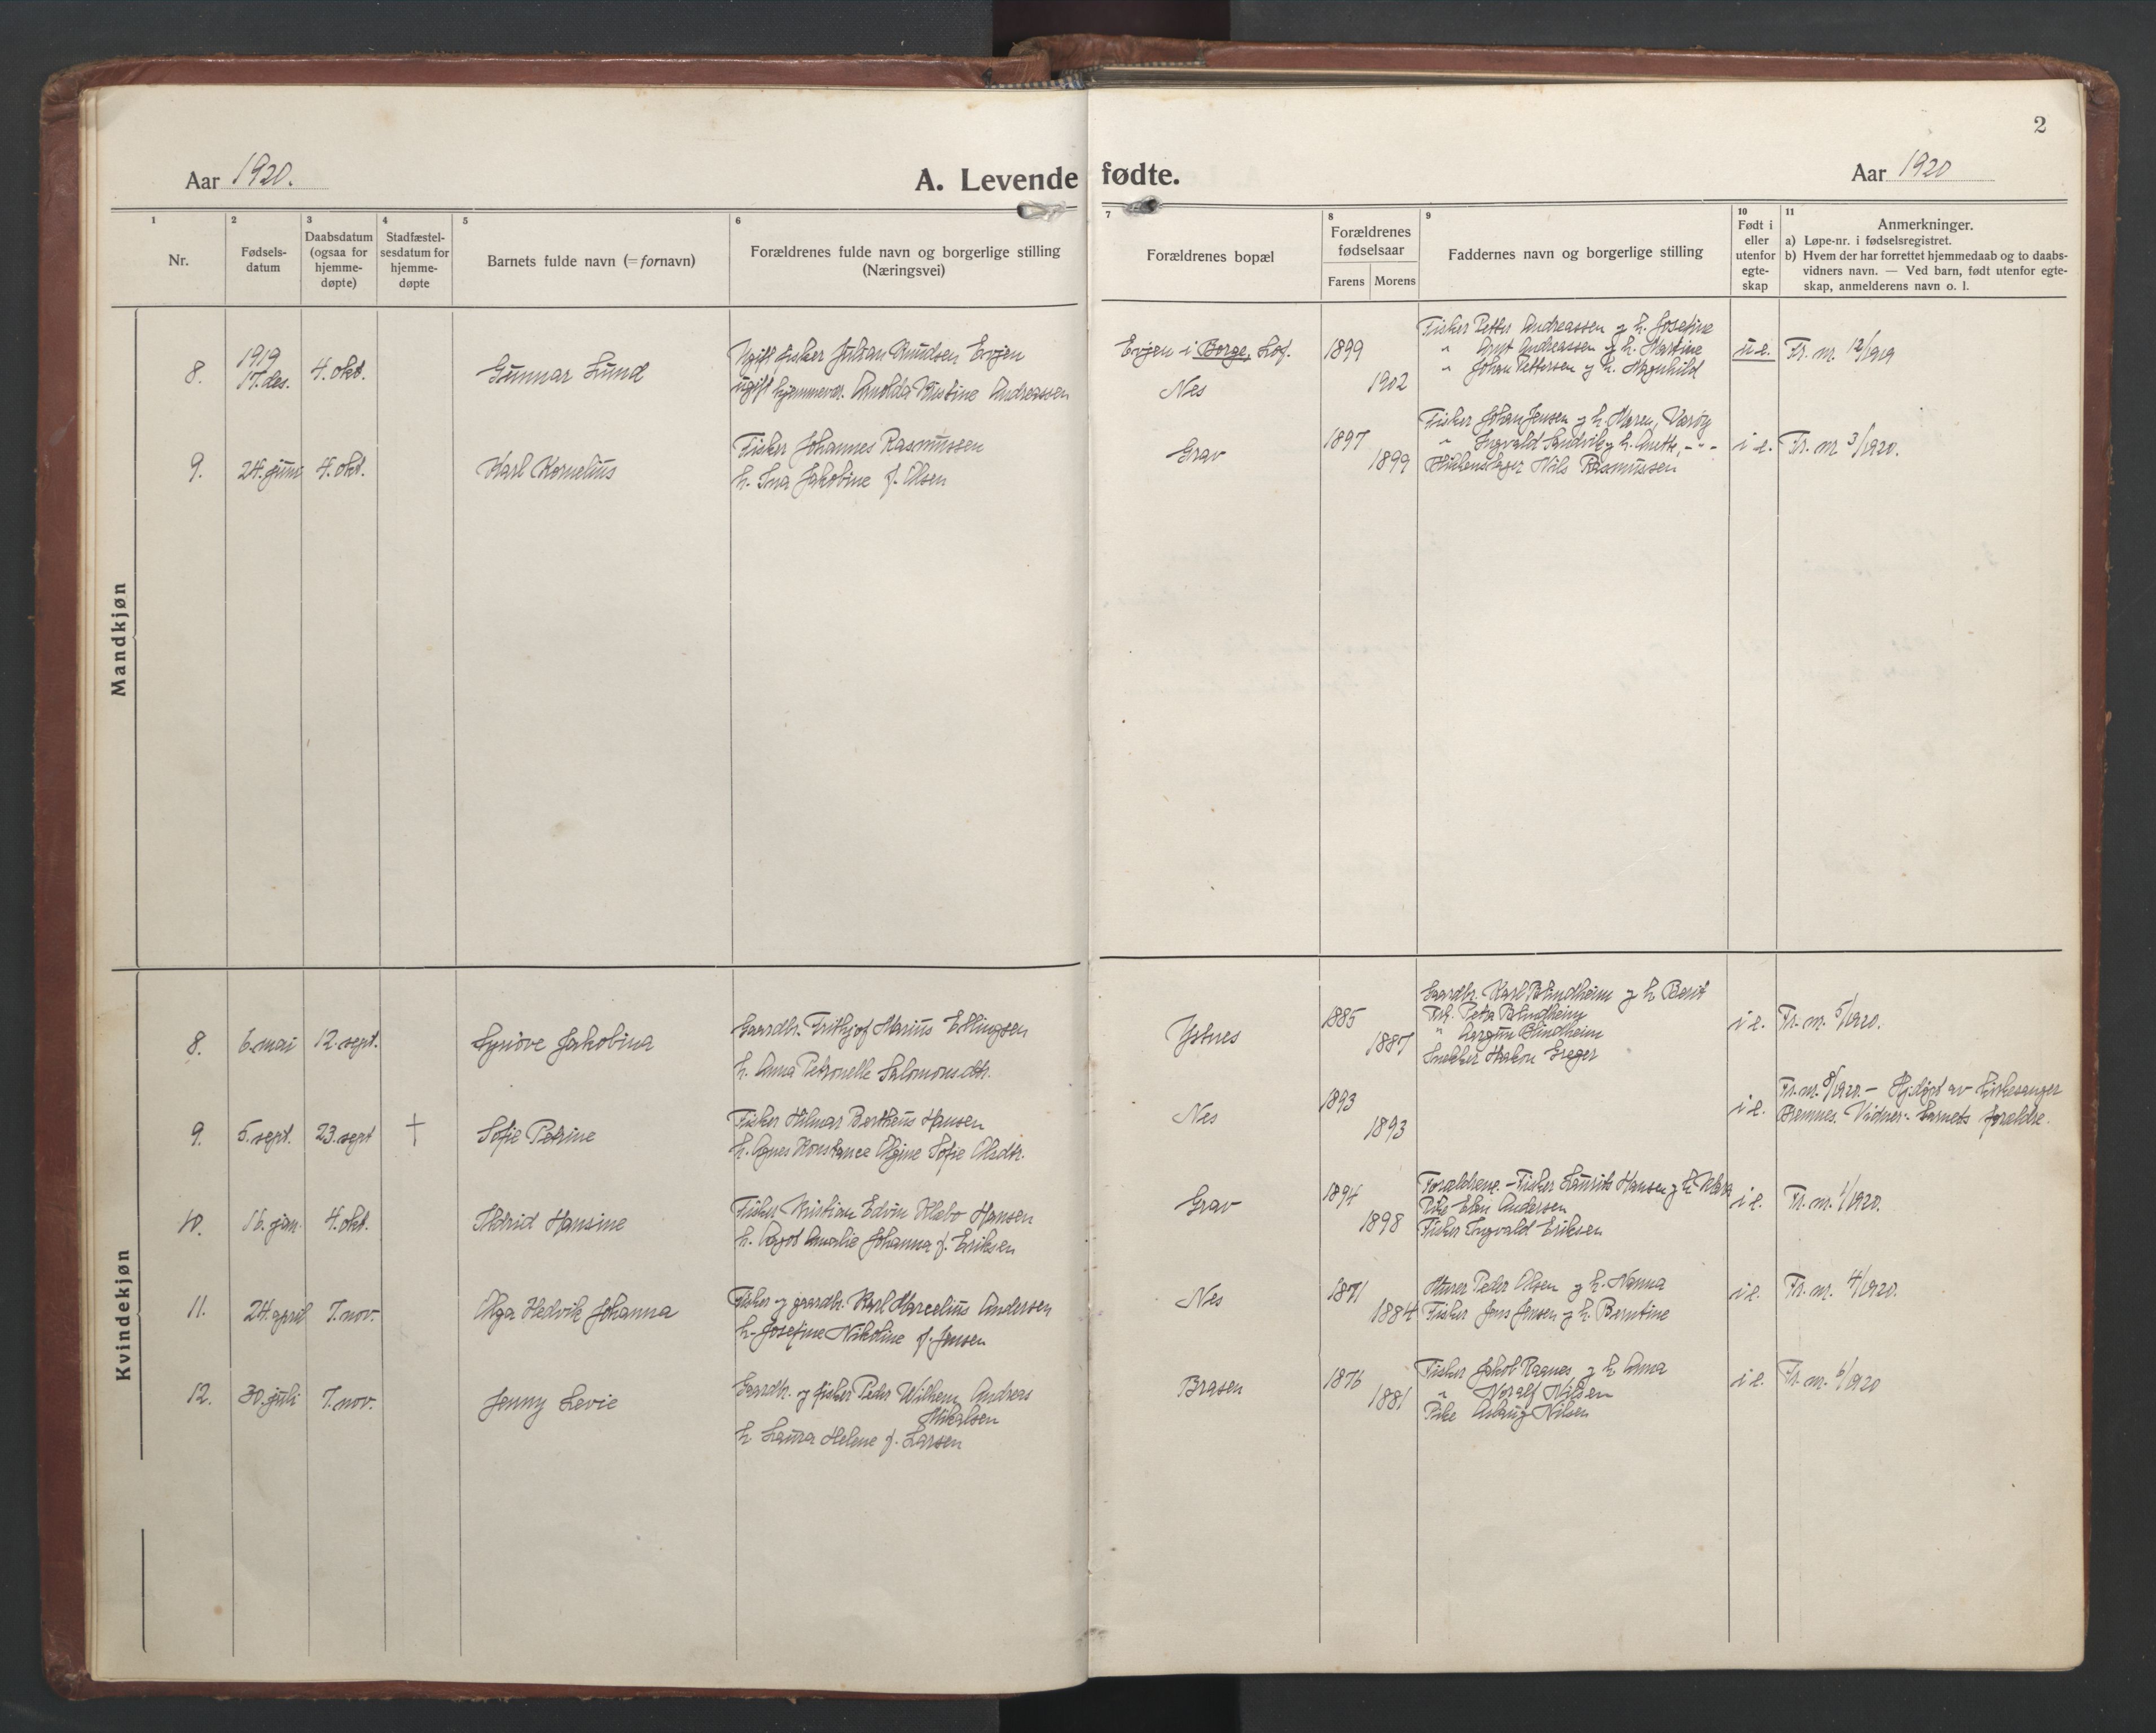 2
Aar 1920.
A. Levende fødte.
Aar 1920
1
Nr.
2
Fødsels-
datum
3
Daabsdatum
(ogsaa for
hjemme-
døpte)
4
Stadfæstel-
sesdatum for
hjemme-
døpte
5
Barnets fulde navn (= fornavn)
6
Forældrenes fulde navn og borgerlige stilling
(Næringsvei)
7
Forældrenes bopæl
8
Forældrenes
fødselsaar
Farens Morens
9
Faddernes navn og borgerlige stilling
10
Født i
eller
utenfor
egte-
skap
11
Anmerkninger.
a) Løpe-nr. i fødselsregistret.
b) Hvem der har forrettet hjemmedaab og to daabs-
vidners navn. — Ved barn, født utenfor egte-
skap, anmelderens navn o. l.
Mandkjøn
8.
1919
17. des.
4. okt.
Gunnar Lund
Ugift fisker Julian Knudsen Evjen
ugift hjemmevær. Arnolda Kristine Andreassen
Evjen i Borge, Lof.
Nes
1899
1902
Fisker Petter Andreassen og h. Josefine
" Arnt Andreassen og h. Martine
" Johan Pettersen og h. Magnhild
u.e.
Fr. nr. 12/1919
9.
24. juni
4. okt.
Karl Kornelius
Fisker Johannes Rasmussen
h. Ina Jakobine f. Olsen
Grav
1897
1899
Fisker Johan Jensen og h. Maren, Værøy
" Ingvald Sandvik og h. Anette, - " -
Nils Rasmussen
i e.
Fr. nr 3/1920.
Kvindekjøn
8.
6. mai
12. sept.
Synøve Jakobina
Gaardbr. Frithjof Marius Ellingsen
h. Anna Petronelle Salomonsdtr.
Ystnes
1885
1887
Gaardbr. Karl Blindheim og h Berit
Frk. Petra Blindheim
" Blindheim
Snekker Hakon Greger
i e.
Fr. nr. 5/1920.
9.
5. sept.
23. sept
†
Sofie Petrine
Fisker Hilmar Bertheus Hansen
h. Agnes Konstance Olgine Sofie Olsdtr.
Nes
1893
1893
i e.
Fr. nr. 8/1920 - Hj.døpt av kirkesanger
Bremnes. Vidner: barnets forældre.
10.
16. jan.
4. okt.
Astrid Hansine
Fisker Kristian Edvin Klæbo Hansen
h. Agot Amalie Johanna f. Eriksen
Grav
1894
1898
Forældrene. - Fisker Laurits Hansen og h. Klara
Pike Elen Andersen
Fisker Ingvald Eriksen
i e.
Fr. nr. 1/1920.
11.
24. april
7. nov.
Olga Hedvik Johanna
Fisker og gaardbr. Karl Marcelius Andersen
h. Josefine Nikoline f. Jensen
Nes
1871
1884
Murer Peder Olsen og h. Nanna
Fisker Jens Jensen og h. Berntine
i e.
Fr. nr. 4/1920.
12.
30. juli
7. nov.
Jenny Levie
Gaardbr. og fisker Peder Wilhelm Andreas
Mikalsen
h Laura Helene f. Larsen
Brasen
1876
1881
Fisker Jakob Raanes og h Anna
" Noralf Nilsen
Pike Aslaug Nilsen
i e.
Fr. nr. 6/1920